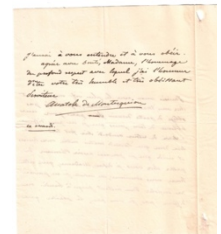 j'aurai à vous entendre et à vous obéir.
agréez mon Dieu, Madame, l'hommage
du profond respect avec lequel j'ai l'honneur
d'être votre très humble et très obéissant
Serviteur
Anatole de Montesquiou
ce mardi.